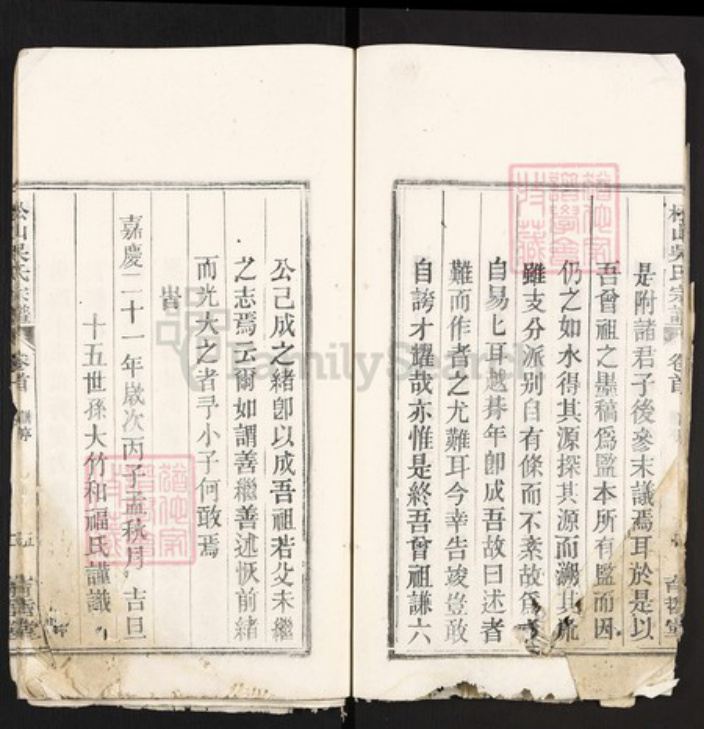 是附諸君子後參末議焉耳於是以
吾曾祖之墨稿爲監本所有監而因
仍之如水得其源探其源而溯其流
雖支分派别自有條而不紊故爲
自易七耳越朞年卽成吾故曰述者
難而作者之尤難耳今幸告竣豈敢
自誇才耀哉亦惟是終吾曾祖謙六
公己成之緒卽以成吾祖若父未繼
之志焉云爾如謂善繼善述恢前緒
而光大之者予小子何敢焉
旹
嘉慶二十一年歲次丙子孟秋月吉旦
十五世孫大竹和福氏謹識
松山吳氏宗譜
卷首
松山吳氏宗譜
卷首
FamilySearch